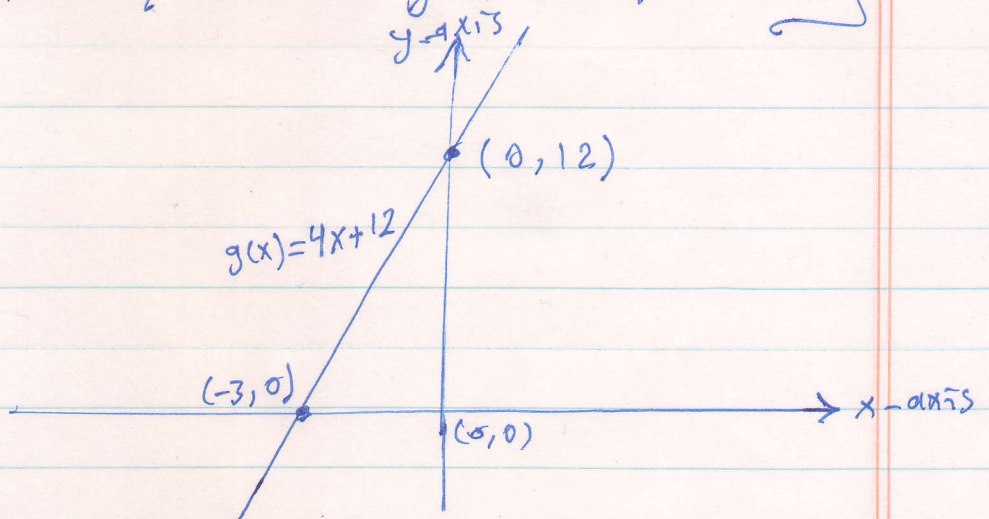 y-axis
(0, 12)
g(x)=4x+12
(-3, 0)
x-axis
(0,0)